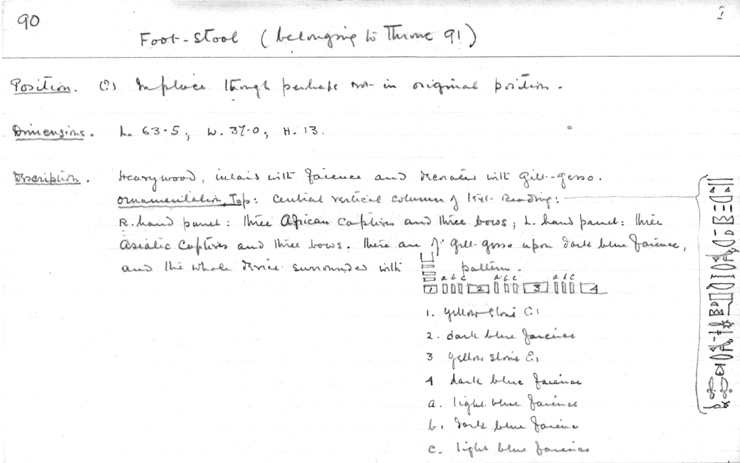 90
I
Foot-stool (belonging to Throne 91)
Position. (?) In place though perhaps not in original position.
Dimensions. L. 63.5, W. 37.0, H. 13.
Description. Heavy wood, inlaid with faience and decorated with gilt-gesso.
Ornamentation, Top: Central vertical column of text. Reading:
R. hand panel: three African Captives and three bows; L. hand panel: three
Asiatic Captives and three bows. These are of gilt-gesso upon dark blue faience,
and the whole device surrounded with pattern.
a b c a b c a b c
1 2 3 4
1. yellow stone (?)
2. dark blue faience
3 yellow stone (?)
4 dark blue faience
a. light blue faience
b. dark blue faience
c. light blue faience